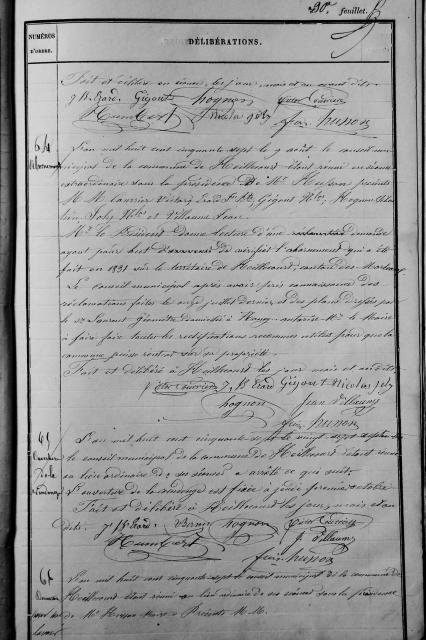 90e feuillet.
NUMÉROS D'ORDRE.
DÉLIBÉRATIONS.
Fait et délibéré en séance, les jour, mois et an avant dits.
J B Erard. Gigout hognon Victor Couvrier
Humbert Nicolas Joly Jean husson
64
L'an mil huit cent cinquante sept le 9 août le conseil mu-
nicipal de la commune de Heillecourt étant réuni en séance
extraordinaire sous la présidence de Mr Husson présents
M M Couvrier Victor, Erard J Bte, Gigout Nas, Hognon
Joly Nas et Villaume Jean.
Mr le Président donne lecture d'une demande
ayant pour but de vérifier l'abornement qui a été
fait en 1831 sur le territoire de Heillecourt, canton des
Le Conseil municipal après avoir pris connaissance des
réclamations faites le onze juillet dernier et des plans dressés par
le Sr géomètre domicilié à Nancy autorise Mr le Maire
à faire faire toutes les rectifications reconnues utiles pour que la
commune puisse rentrer sur sa propriété.
Fait et délibéré à Heillecourt les jour mois et an dits
Victor Couvrier J B Erard Gigout Nicolas Joly
hognon Jean Villaume
Jean husson
65
L'an mil huit cent cinquante sept le vingt sept septembre
le conseil municipal de la commune de Heillecourt étant réuni
au lieu ordinaire de ses séances a arrêté ce qui suit.
L'ouverture de la vendange est fixée à jeudi premier octobre
Fait et délibéré à Heillecourt les jour, mois et an
dits. J B Erard. hognon Victor Couvrier
Humbert J. Villaume
Jean husson
L'an mil huit cent cinquante sept le conseil municipal de la commune de
Heillecourt étant réuni au lieu ordinaire de ses séances sous la présidence
de Mr Husson Maire. Présents M. M.